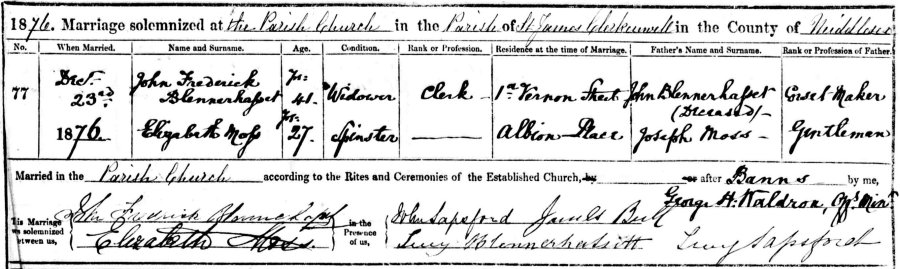 1876. Marriage solemnized at the Parish Church in the Parish of St James Clerkenwell in the County of Middlesex
No. When Married. Name and Surname. Age. Condition. Rank or Profession. Residence at the time of Marriage. Father's Name and Surname. Rank or Profession of Father.
77 Dec. 23rd 1876 John Frederick Blennerhasset 41 Yrs. Widower Clerk Vernon Street John Blennerhasset (Deceased) Corset Maker
Elizabeth Moss 27 Yrs. Spinster Albion Place Joseph Moss Gentleman
Married in the Parish Church according to the Rites and Ceremonies of the Established Church, by or after Banns by me,
George H. Waldron, Offg. Minr.
This Marriage was solemnized between us, John Fredrick Blennerhasset Elizabeth Moss in the Presence of us, John Sapsford
Lucy Blennerhassett Lucy Sapsford